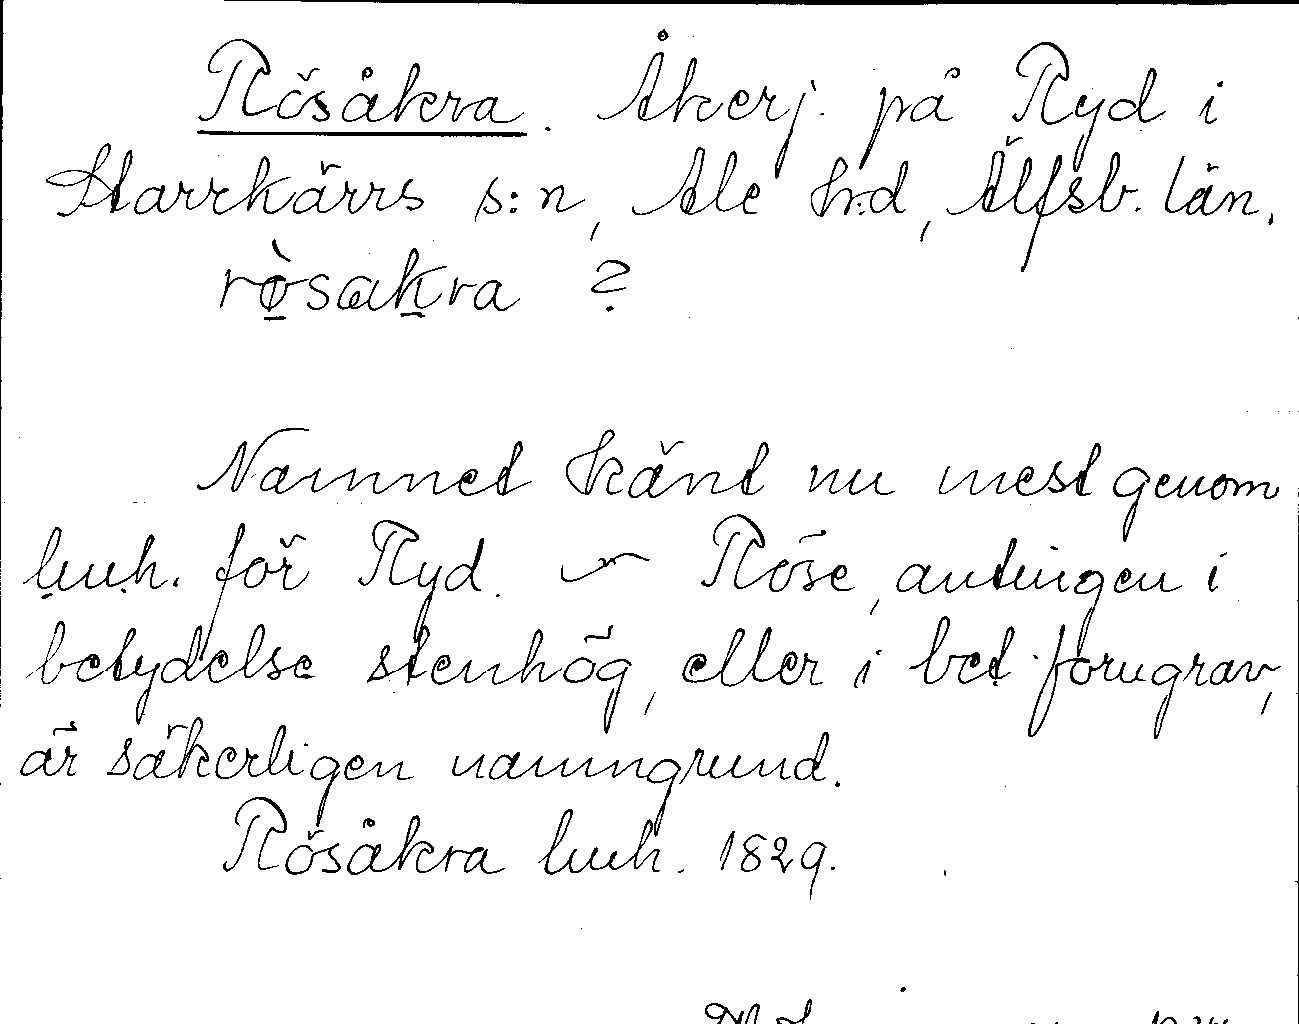 Rösåkra. Åkerj. på Ryd i
Starrkärrs s:n, Ale h:d, Älfsb. län.
rø̀sakra ?
Namnet känt nu mest genom
lmh. för Ryd. ~ Röse, antingen i
betydelse stenhög, eller i bet. forngrav,
är säkerligen namngrund.
Rösåkra lmh. 1829.